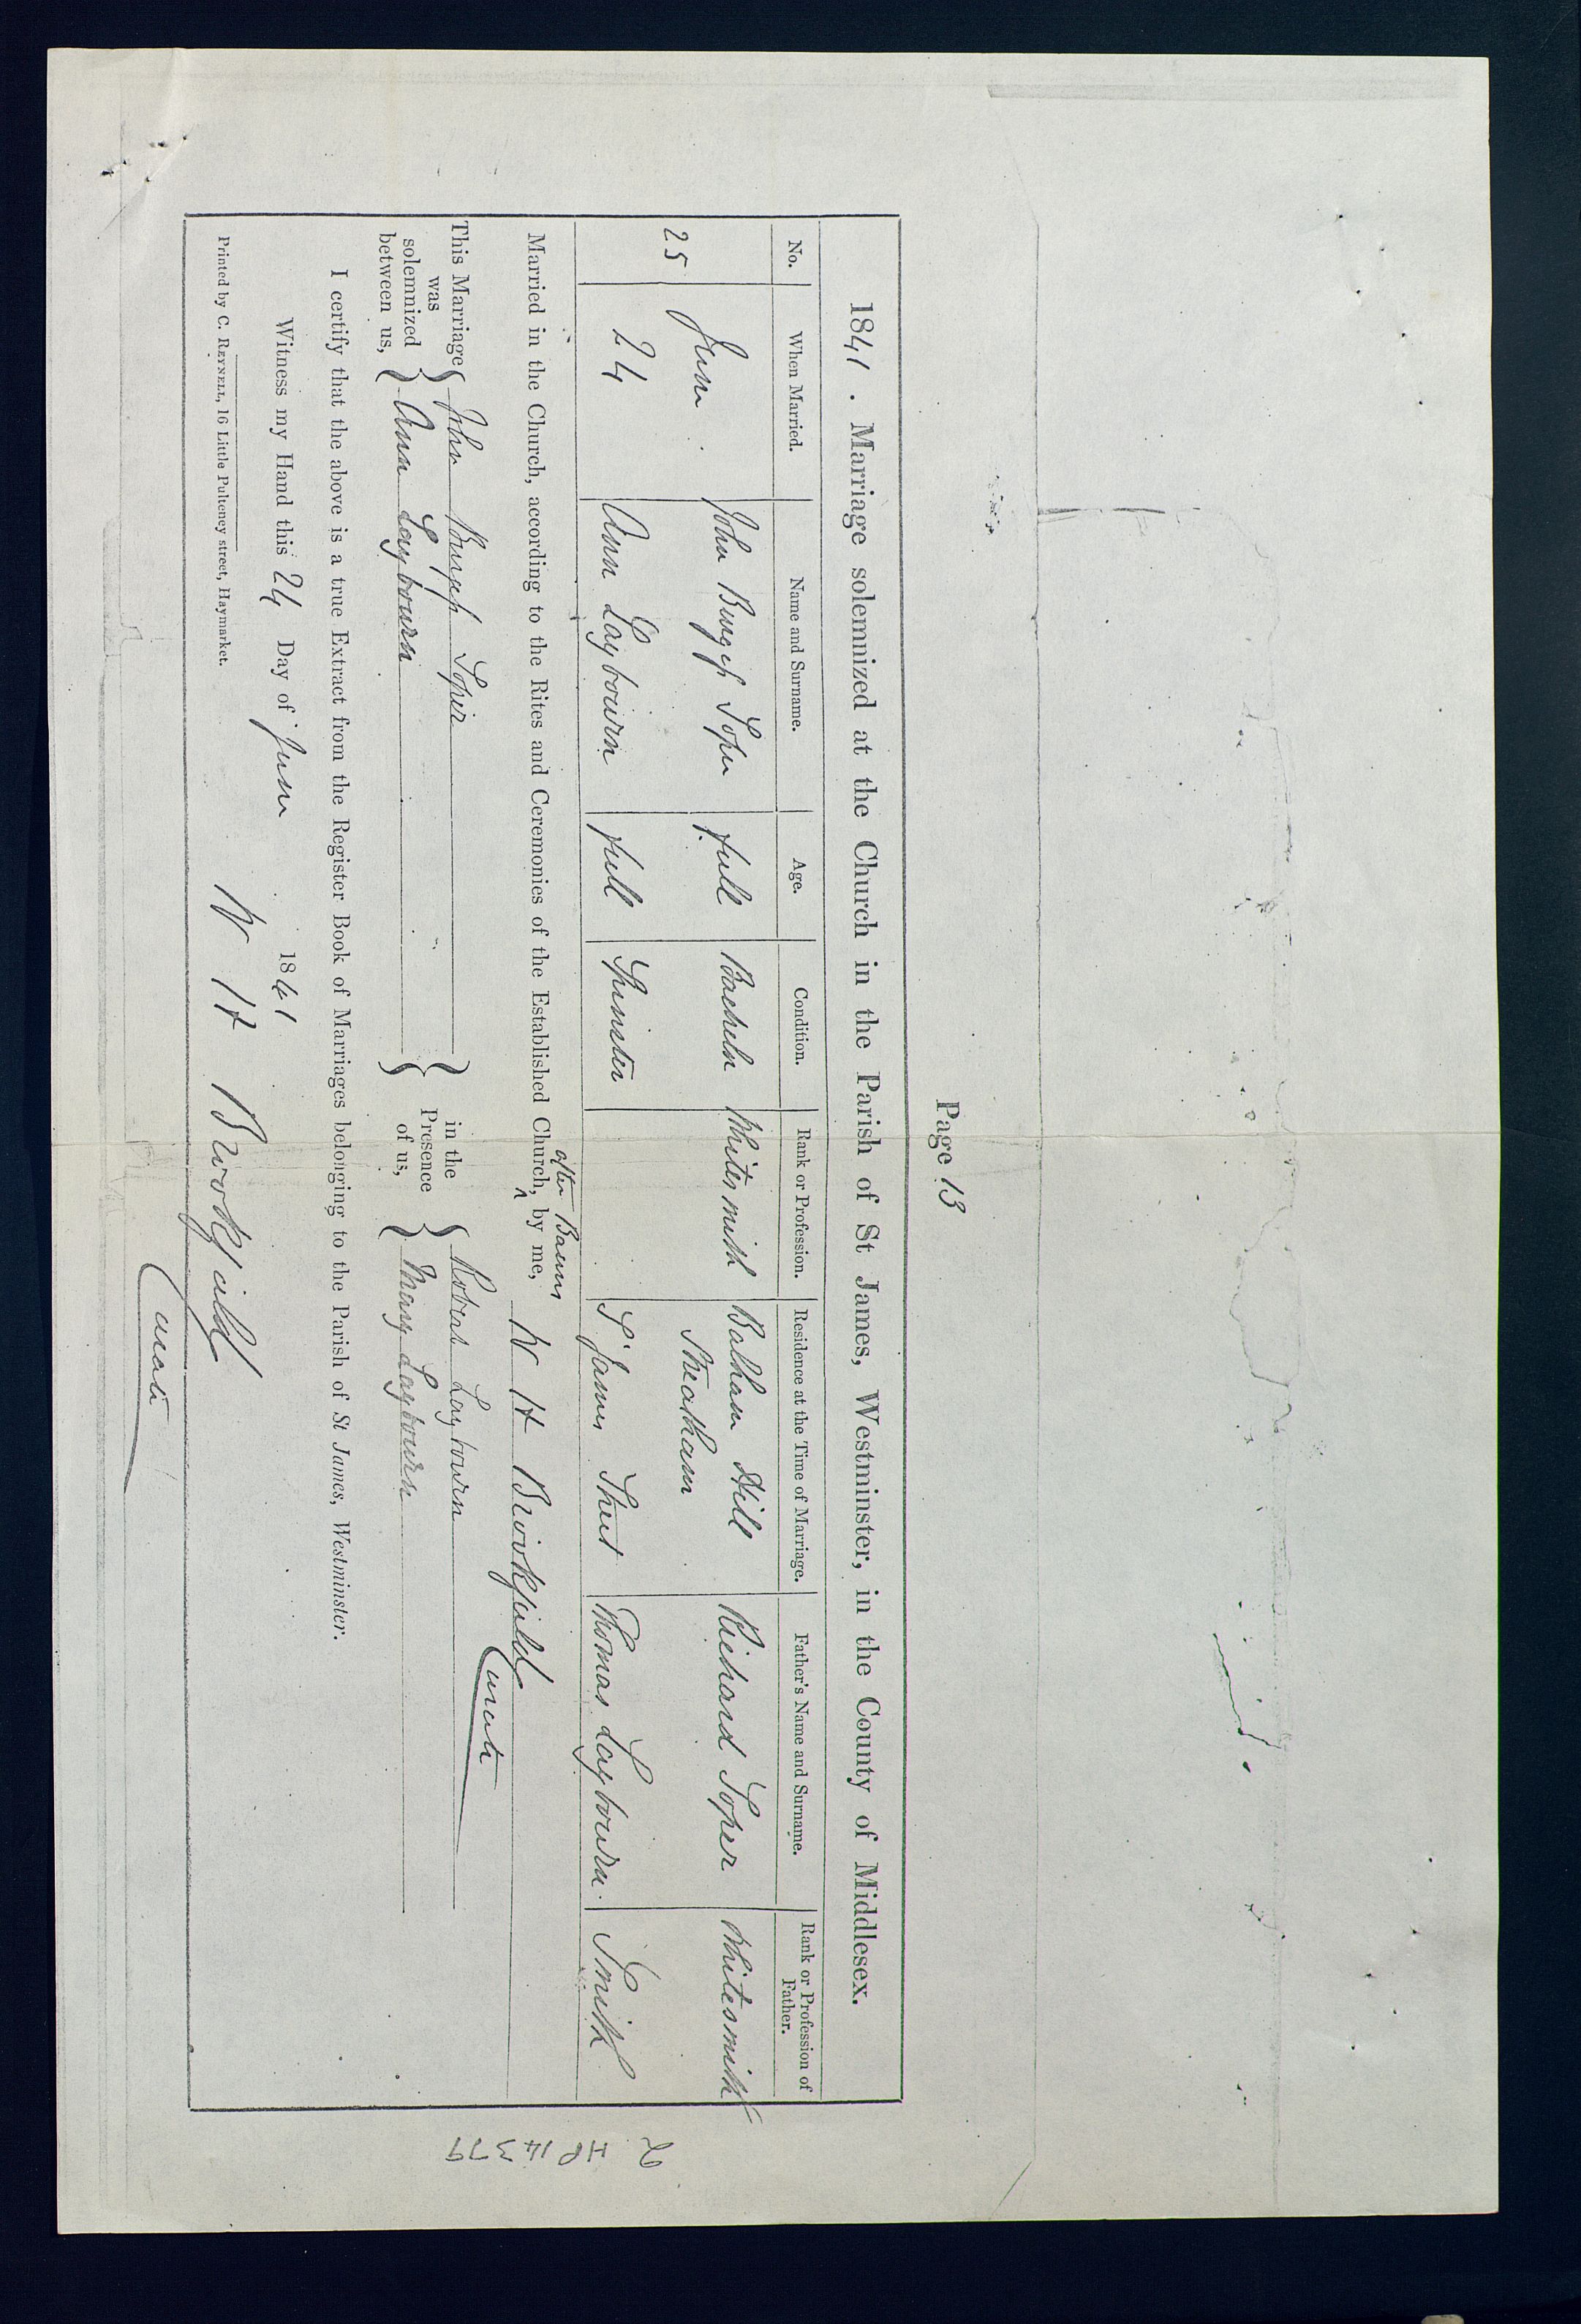 Page 13
1841. Marriage solemnized at the Church in the Parish of St James, Westminster, in the County of Middlesex.
No. When Married. Name and Surname. Age. Condition. Rank or Profession. Residence at the Time of Marriage. Father's Name and Surname. Rank or Profession of Father.
25 June 24 John Burgess Soper full Bachelor Whitesmith Balham Hill Streatham Richard Soper Whitesmith
Ann Laybourn full Spinster St James Street Thomas Laybourn Smith
after Banns
Married in the Church, according to the Rites and Ceremonies of the Established Church, by me, W H Brookfield Curate
This Marriage was solemnized between us, John Burgess Soper in the Presence of us, Robert Laybourn
Ann Laybourn Mary Laybourn
I certify that the above is a true Extract from the Register Book of Marriages belonging to the Parish of St James, Westminster.
Witness my Hand this 24 Day of June 1841
W H Brookfield
Curate
Printed by C. REYNELL, 16 Little Pulteney street, Haymarket.
2 HP 14379